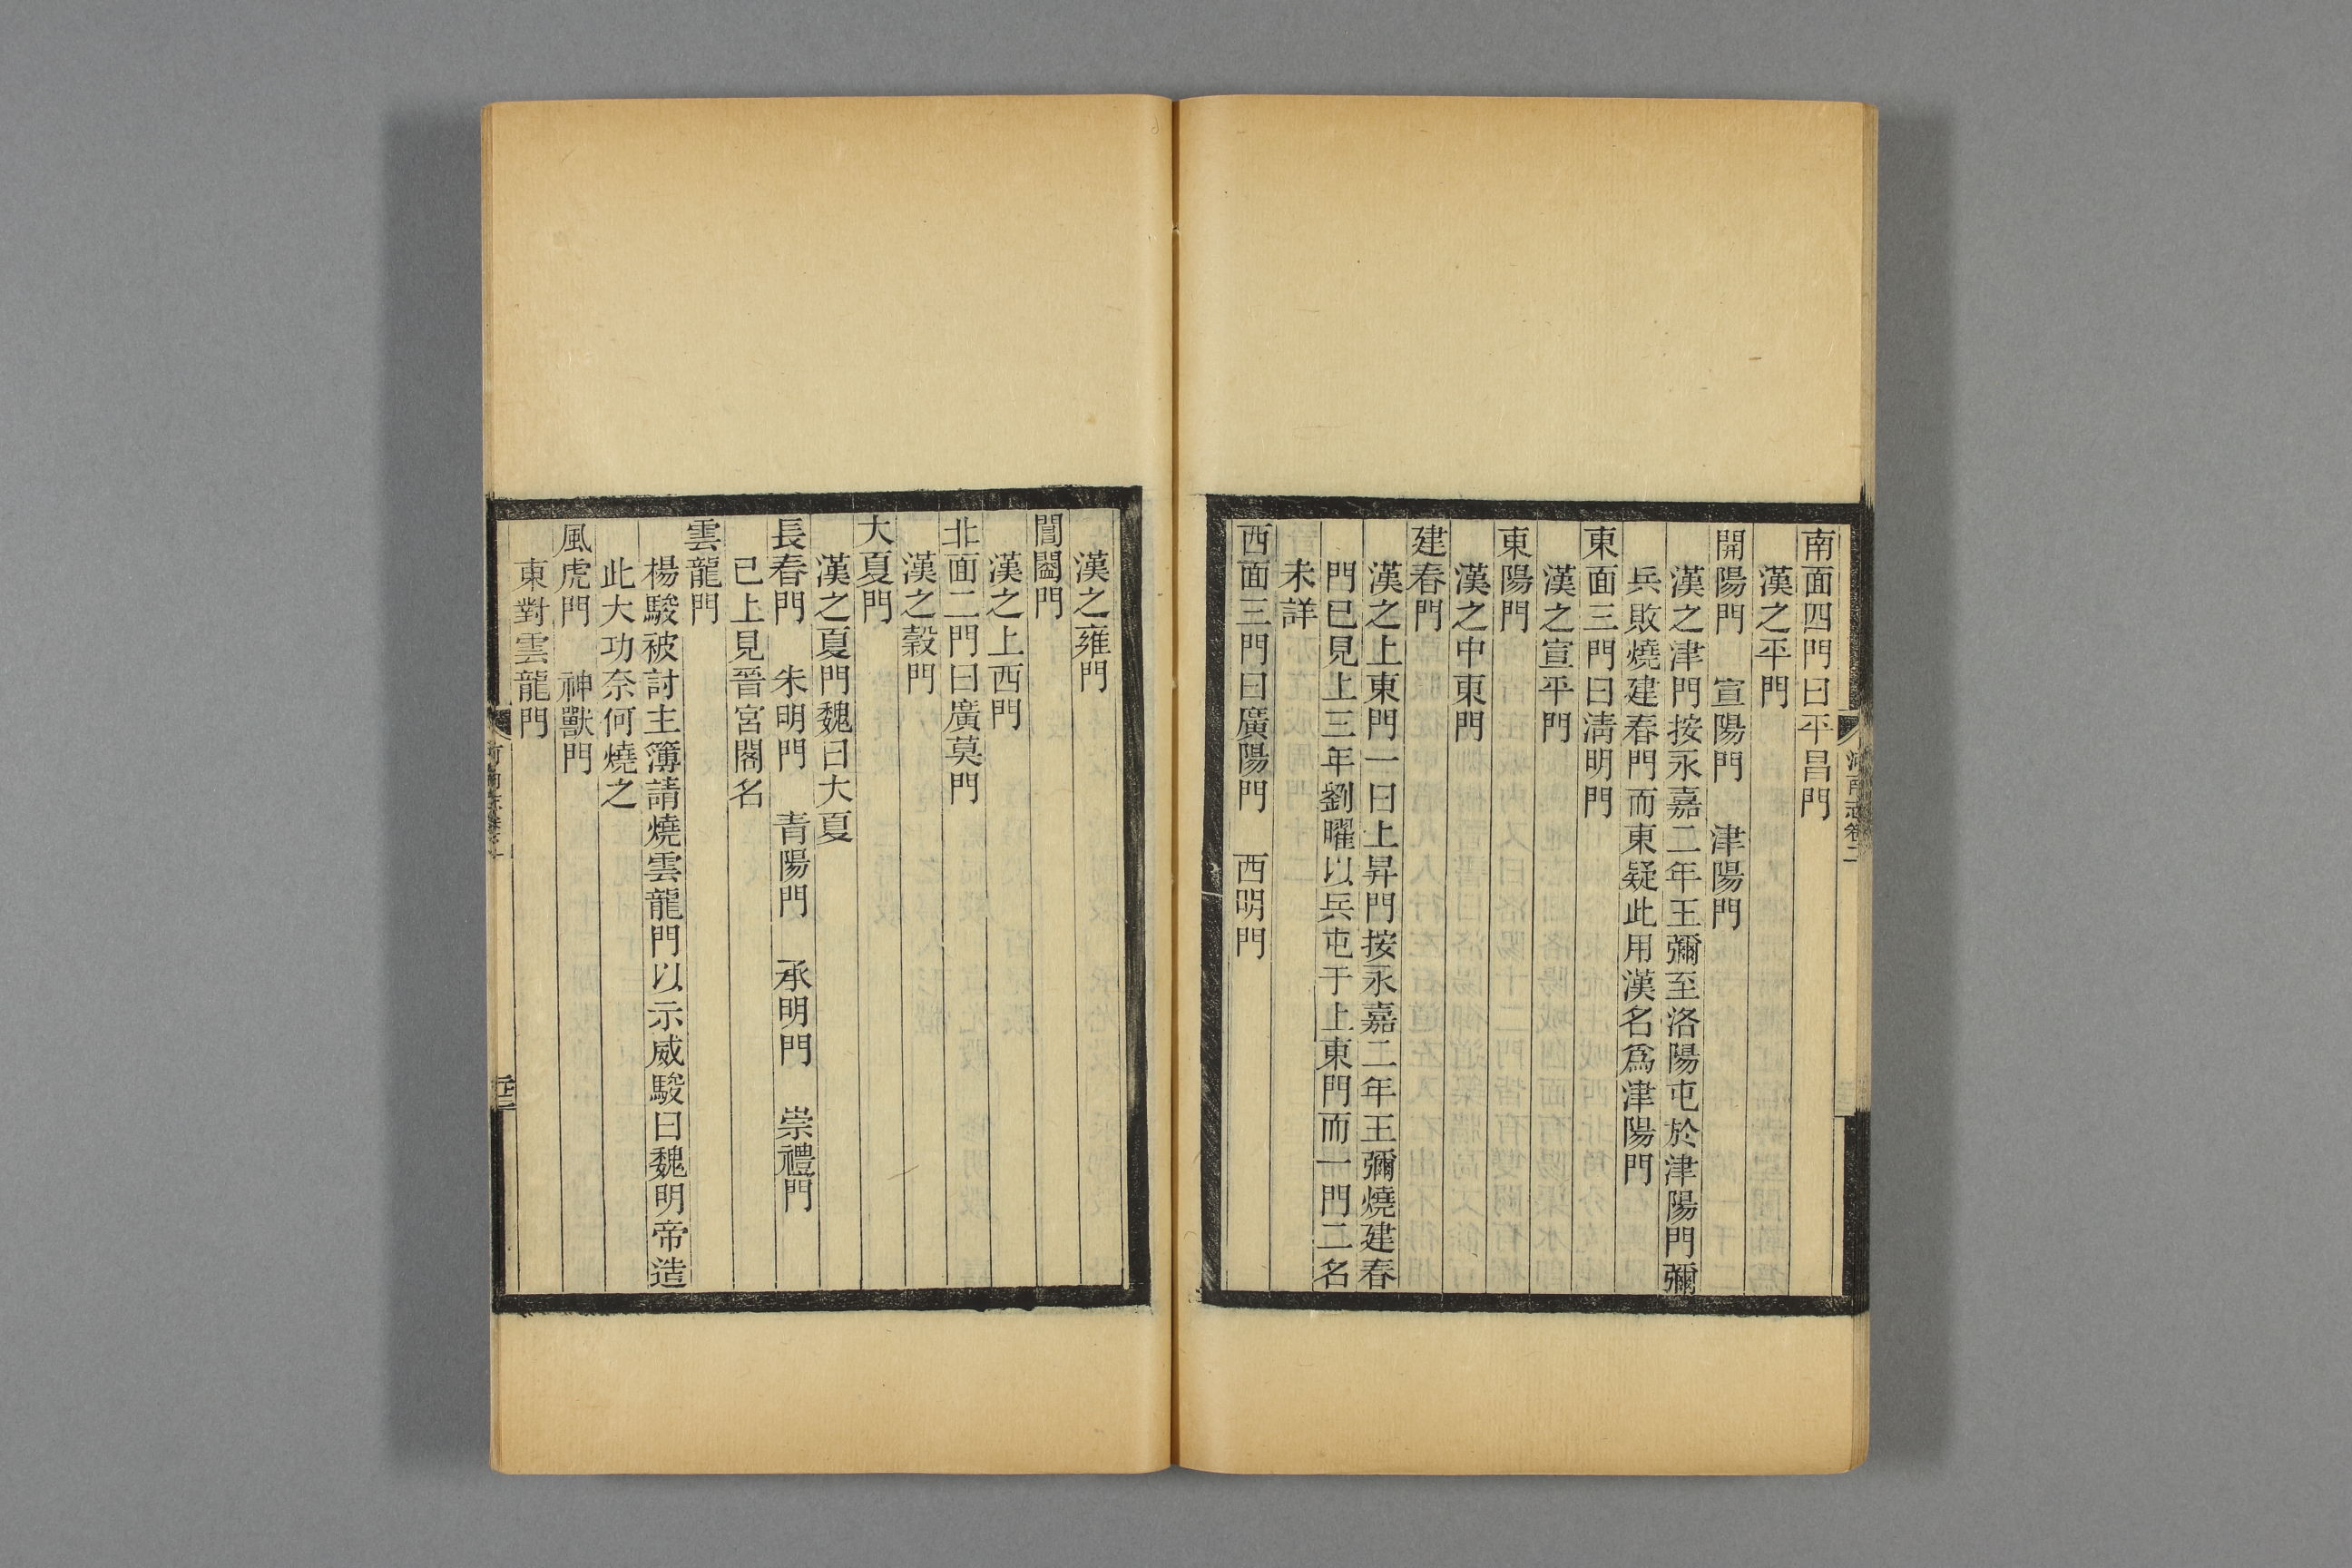 南面四門曰平昌門
漢之平門
開陽門　宣陽門　津陽門
漢之津門按永嘉二年王彌至洛陽屯於津陽門彌
兵敗燒建春門而東疑此用漢名爲津陽門
東面三門曰淸明門
漢之宣平門
東陽門
漢之中東門
建春門
漢之上東門一曰上昇門按永嘉二年王彌燒建春
門已見上三年劉曜以兵屯于上東門而一門二名
未詳
西面三門曰廣陽門　西明門
漢之雍門
閶闔門
漢之上西門
北面二門曰廣莫門
漢之穀門
大夏門
漢之夏門魏曰大夏
長春門　朱明門　青陽門　承明門　崇禮門
已上見晉宮閣名
雲龍門
楊駿被討主簿請燒雲龍門以示威駿曰魏明帝造
此大功奈何燒之
風虎門　神獸門
東對雲龍門